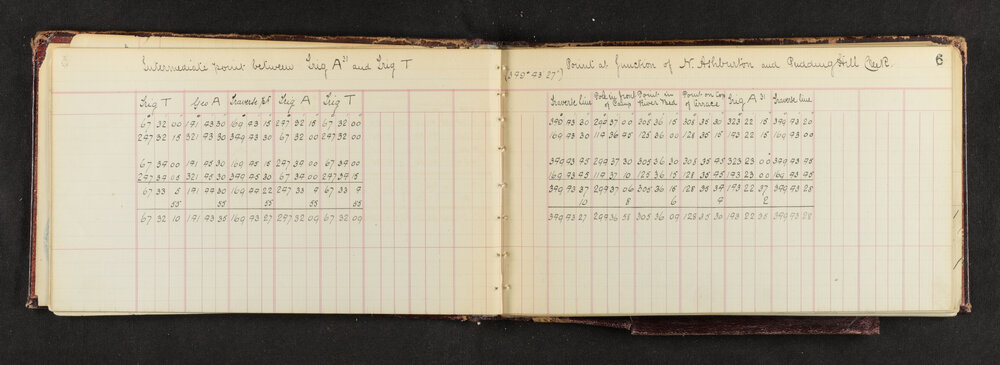 Intermediate point between Trig A³¹ and Trig T
Trig T Geo A Traverse pt Trig A Trig T
67 32 00 141 43 30 169 43 15 247 32 15 67 32 00
247 32 15 321 43 30 349 43 30 67 32 00 247 32 00
67 34 00 141 45 30 169 45 15 247 34 00 67 34 00
247 34 05 321 45 30 349 45 30 67 34 00 247 34 15
67 33 5 141 44 30 169 44 22 247 33 4 67 33 4
55 55 55 55 55
67 32 10 141 43 35 169 43 27 247 32 09 67 32 09
6
Point at junction of N. Ashburton and Pudding Hill Creek.
(349° 43' 27")
Traverse line Pole in front of Camp Point in River Bed Point on Top of Terrace Trig A 31 Traverse line
349 43 30 299 37 00 305 36 15 308 35 30 323 22 15 349 43 20
169 43 30 119 36 45 125 36 00 128 35 15 143 22 15 169 43 00
349 43 45 299 37 30 305 36 30 308 35 45 323 23 00 349 43 45
169 43 45 119 37 10 125 36 15 128 35 45 143 23 00 169 43 45
349 43 37 299 37 06 305 36 15 128 35 34 143 22 37 349 43 28
10 8 6 4 2
349 43 27 299 36 58 305 36 09 128 35 30 143 22 35 349 43 28